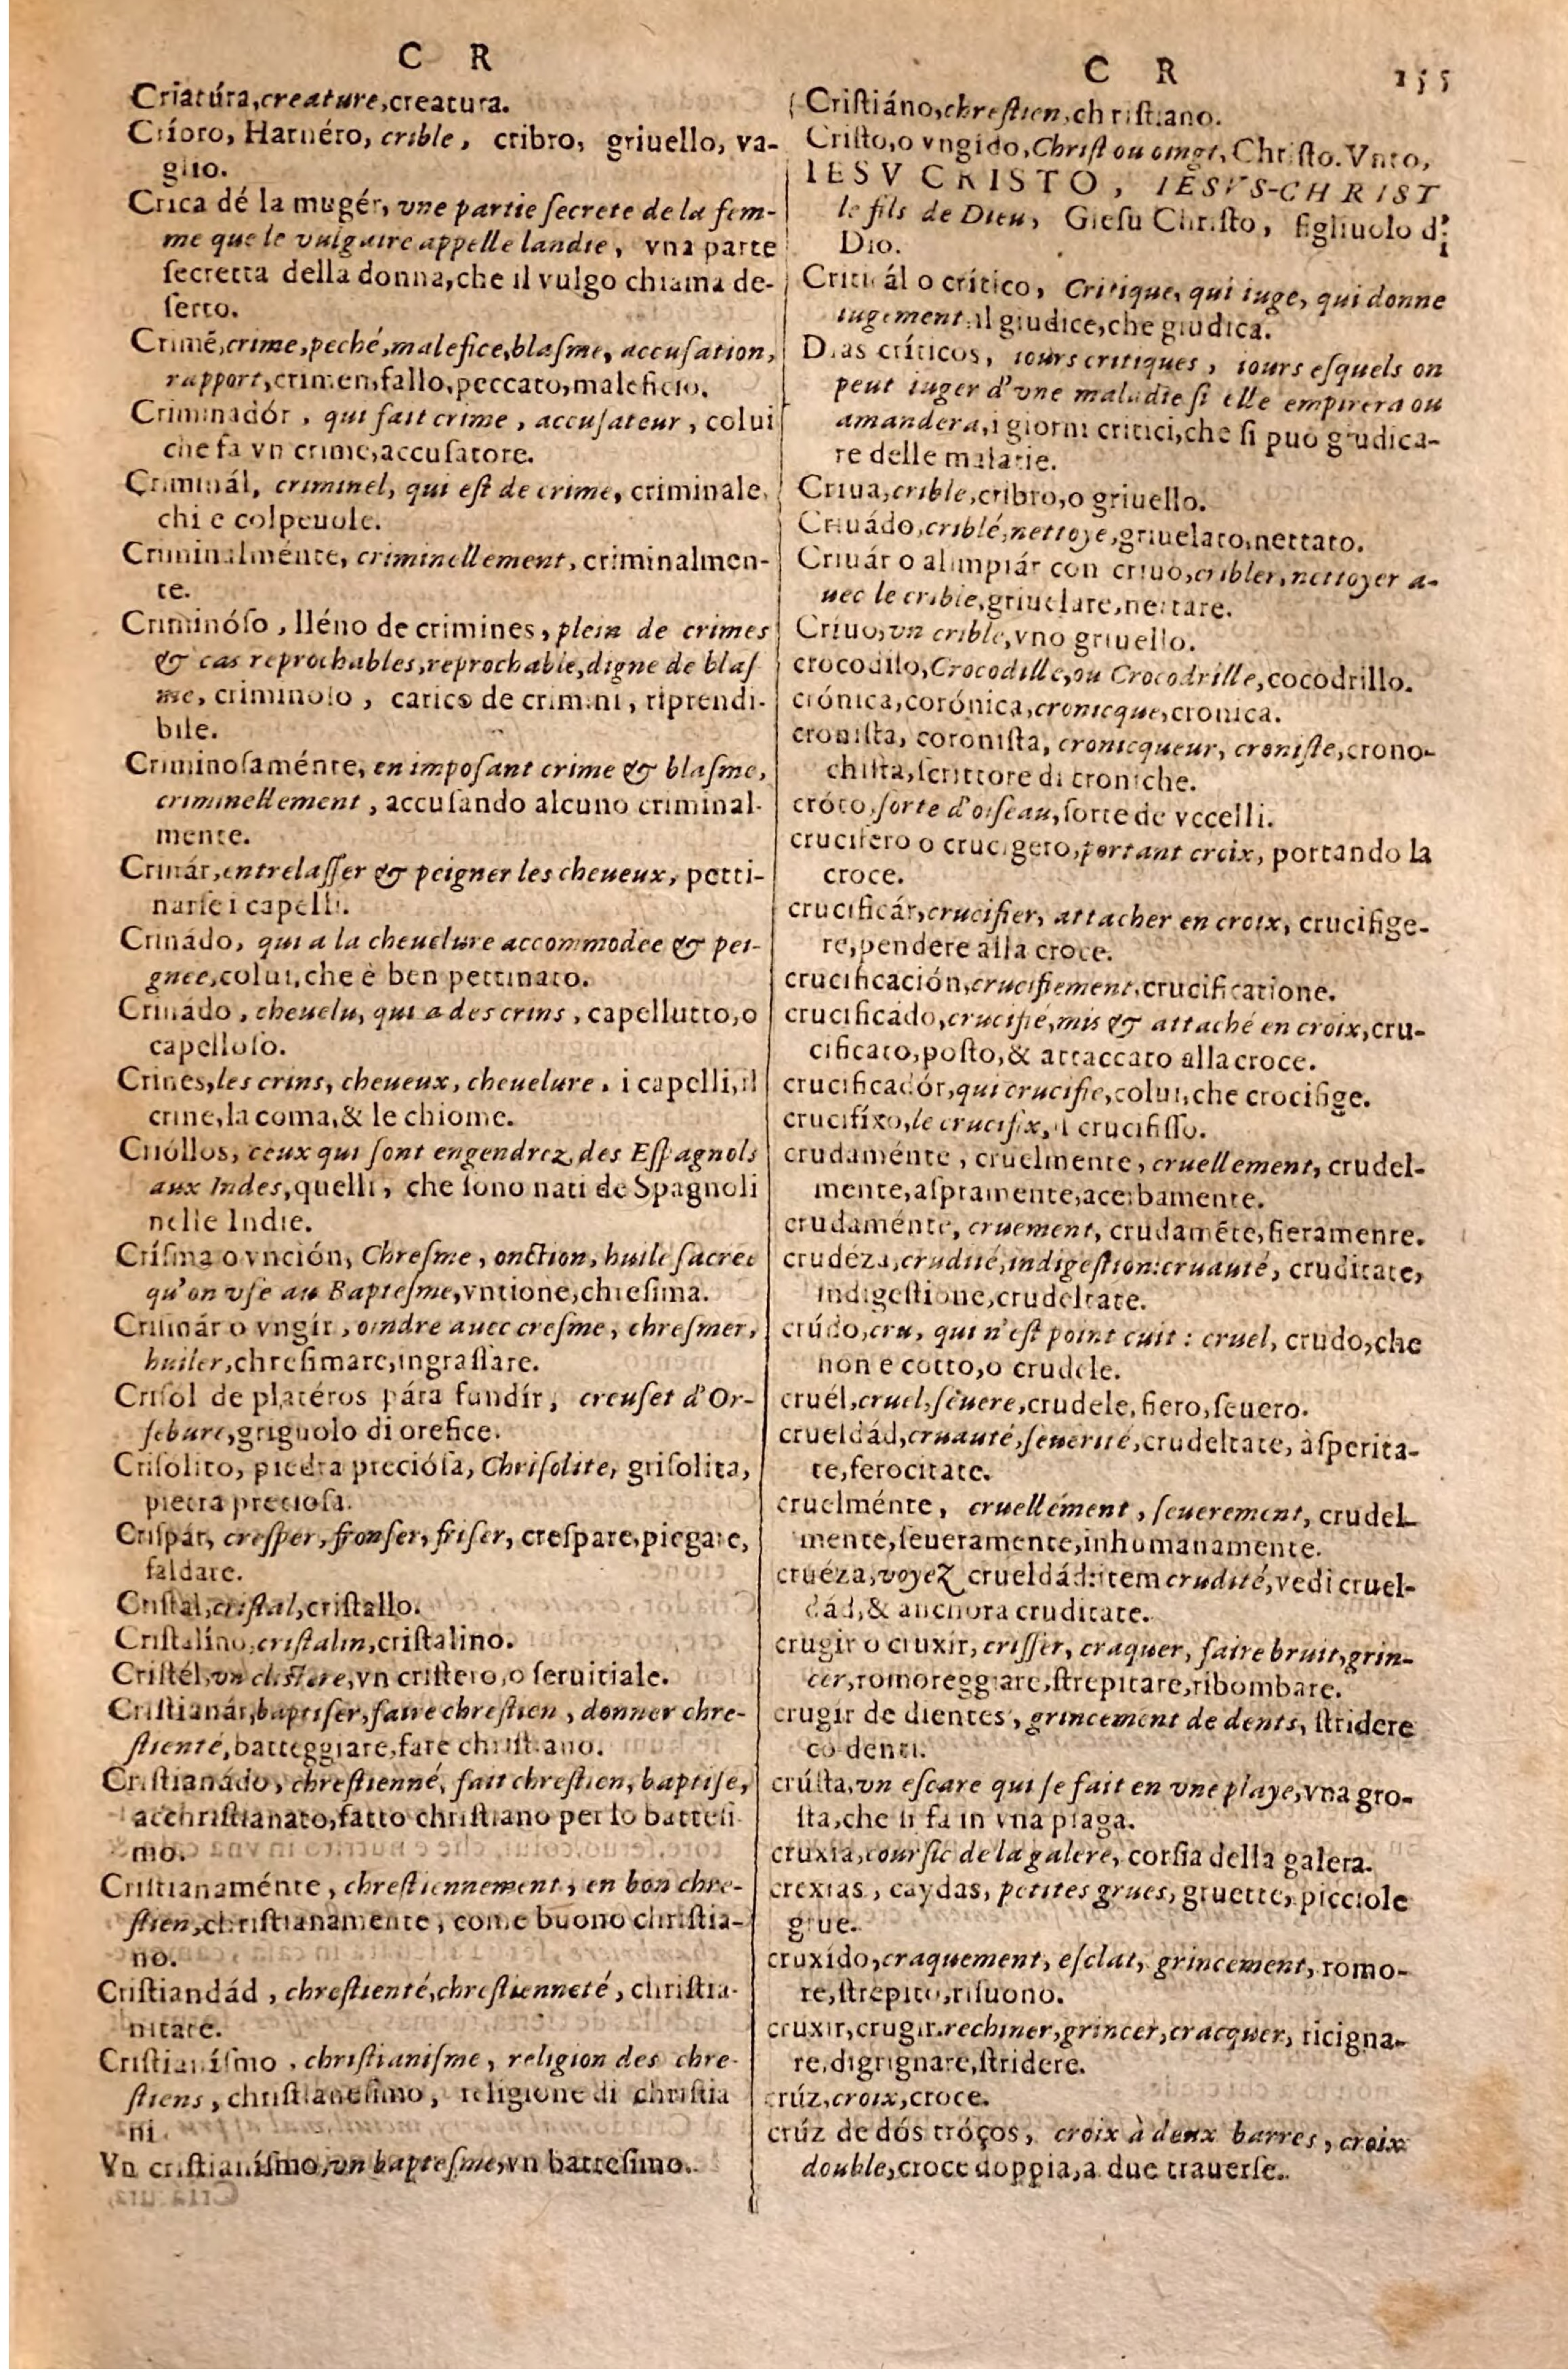 C R
Criatúra, creature, creatura.
Críbro, Harnéro, crible, cribro, griuello, va-
glio.
Crica dé la mugér, vne partie ſecrete de la fem-
me que le vulgaire appelle landie, vna parte
ſecretta della donna, che il vulgo chiama de-
ſerto.
Crimé, crime, peché, malefice, blaſme, accuſation,
rapport, crimen, fallo, peccato, maleficio.
Criminadór, qui fait crime, accuſateur, colui
che fa vn crime, accuſatore.
Criminál, criminel, qui eſt de crime, criminale,
chi e colpeuole.
Criminalménte, criminellement, criminalmen-
te.
Criminóſo, lléno de crimines, plein de crimes
& cas reprochables, reprochable, digne de blaſ
me, criminoſo, carico de crimini, riprendi-
bile.
Criminoſaménte, en impoſant crime & blaſme,
criminellement, accuſando alcuno criminal-
mente.
Crinár, entrelaſſer & peigner les cheueux, petti-
narſe i capelli.
Crinádo, qui a la cheuelure accommodee & pei-
gnee, colui, che è ben pettinato.
Crinádo, cheuelu, qui a des crins, capellutto, o
capelloſo.
Crines, les crins, cheueux, cheuelure, i capelli, il
crine, la coma, & le chiome.
Crióllos, ceux qui ſont engendrez des Eſpagnols
aux Indes, quelli, che ſono nati de Spagnoli
nelle Indie.
Críſma o vnción, Chreſme, onction, huile ſacree
qu'on vſe au Bapteſme, vntione, chreſima.
Criſmár o vngir, oindre auec creſme, chreſmer,
huiler, chreſimare, ingraſſare.
Criſol de platéros pára fundír, creuſet d'Or-
feburе, grignolo di orefice.
Criſolito, piedra precióſa, Chriſolite, griſolita,
pietra pretioſa.
Criſpár, creſper, fronſer, friſer, creſpare, piegare,
faldare.
Criſtal, criſtal, criſtallo.
Criſtalíno, criſtalin, criſtalino.
Criſtél, vn cliſtere, vn criſtero, o ſeruitiale.
Criſtianár, baptiſer, faire chreſtien, donner chre-
ſtienté, batteggiare, fare chriſtiano.
Criſtianádo, chreſtienné, fait chreſtien, baptiſe,
acchriſtianato, fatto chriſtiano per lo batteſi-
mo.
Criſtianaménte, chreſtiennement, en bon chre-
ſtien, chriſtianamente, come buono chriſtia-
no.
Criſtiandád, chreſtienté, chreſtienneté, chriſtia-
nitate.
Criſtianíſmo, chriſtianiſme, religion des chre-
ſtiens, chriſtianeſimo, religione di chriſtia
ni.
Vn criſtianíſmo, vn bapteſme, vn batteſimo.
C R 155
Criſtiáno, chreſtien, chriſtiano.
Criſto, o vngido, Chriſt ou oingt, Chriſto. Vnto,
IESV CRISTO, IESVS-CHRIST
le fils de Dieu, Gieſu Chriſto, figliuolo di
Dio.
Criticál o crítico, Critique, qui iuge, qui donne
iugement, il giudice, che giudica.
Dias críticos, iours critiques, iours eſquels on
peut iuger d'vne maladie ſi elle empirera ou
amandera, i giorni critici, che ſi può giudica-
re delle malatie.
Criua, crible, cribro, o griuello.
Criuádo, criblé, nettoye, griuelato, nettato.
Criuár o alimpiár con criuo, cribler, nettoyer a-
uec le crible, griuelare, nettare.
Criuo, vn crible, vno griuello.
crocodilo, Crocodille, ou Crocodrille, cocodrillo.
crónica, corónica, cronicque, cronica.
croniſta, coroniſta, cronicqueur, croniſte, crono-
chiſta, ſcrittore di croniche.
cróto, ſorte d'oiſeau, ſorte de vccelli.
crucifero o crucigero, portant croix, portando la
croce.
crucificár, crucifier, attacher en croix, crucifige-
re, pendere alla croce.
crucificación, crucifiement, crucificatione.
crucificádo, crucifié, mis & attaché en croix, cru-
cificato, poſto, & attaccato alla croce.
crucificadór, qui crucifie, colui, che crocifige.
crucifíxo, le crucifix, il crucifiſſo.
crudaménte, cruelmente, cruellement, crudel-
mente, aſpramente, acerbamente.
crudaménte, cruement, crudaméte, fieramenre.
crudéza, crudité, indigeſtion: cruauté, cruditate,
indigeſtione, crudeltate.
crúdo, cru, qui n'eſt point cuit: cruel, crudo, che
non e cotto, o crudele.
cruél, cruel, ſeuere, crudele, fiero, ſeuero.
crueldád, cruauté, ſeuerité, crudeltate, aſperita-
te, ferocitate.
cruelménte, cruellement, ſeuerement, crudel-
mente, ſeueramente, inhumanamente.
cruéza, voyez crueldád: item crudité, vedi cruel-
dád, & anchora cruditate.
crugir o cruxir, criſſer, craquer, faire bruit, grin-
cer, romoreggiare, ſtrepitare, ribombare.
crugir de dientes, grincement de dents, ſtridere
co denti.
crúſta, vn eſcare qui ſe fait en vne playe, vna gro-
ſta, che ſi fa in vna piaga.
cruxia, courſie de la galere, corſia della galera.
crexias, caydas, petites grues, gruette, picciole
grue.
cruxído, craquement, eſclat, grincement, romo-
re, ſtrepito, riſuono.
cruxir, crugir. rechiner, grincer, cracquer, ricigna-
re, digrignare, ſtridere.
crúz, croix, croce.
crúz de dós tróços, croix à deux barres, croix
double, croce doppia, a due trauerſe.